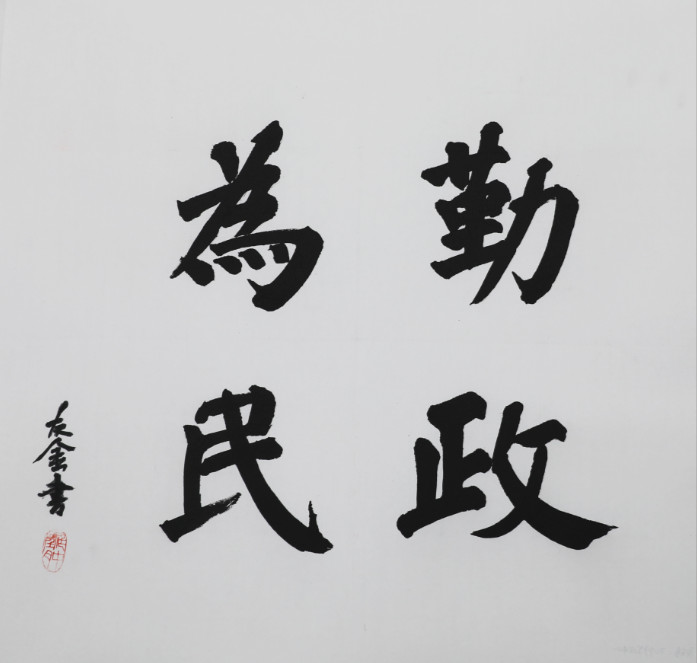 勤政
為民
友金書